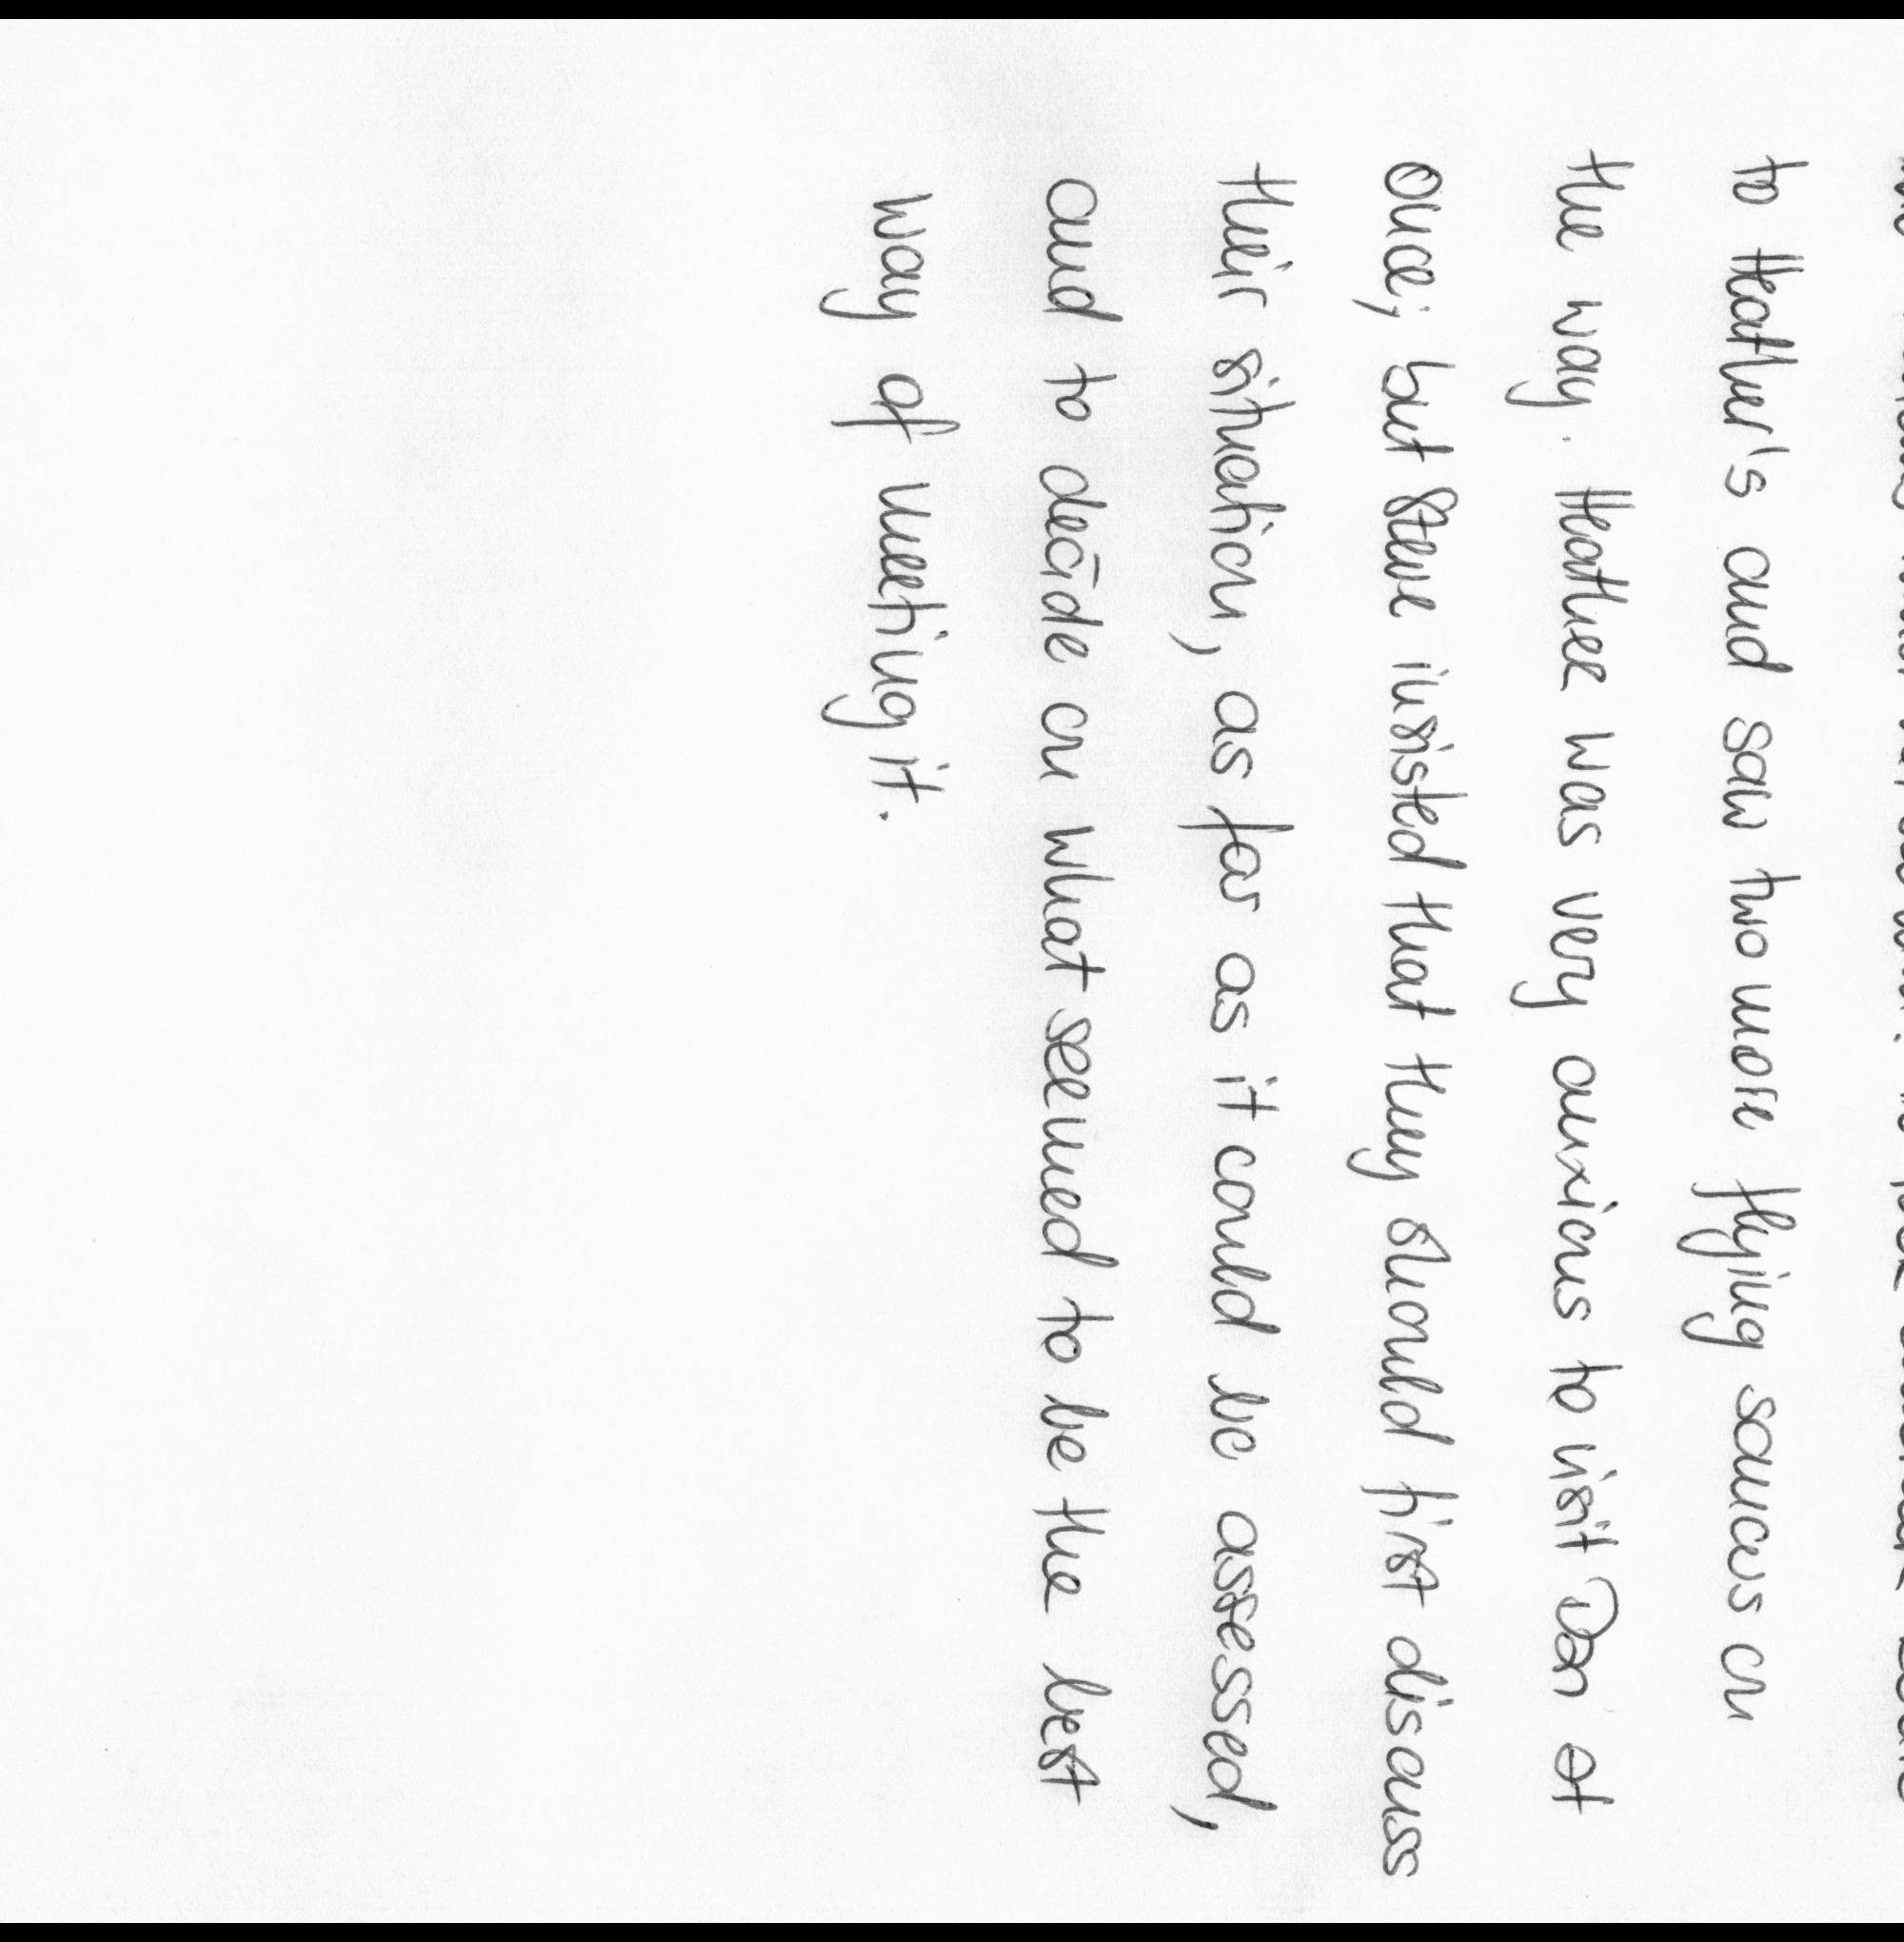 to Heather's and saw two more flying saucers on
the way. Heather was very anxious to visit Dan at
once; but Steve insisted that they should first discuss
their situation, as far as it could be assessed,
and to decide on what seemed to be the best
way of meeting it.